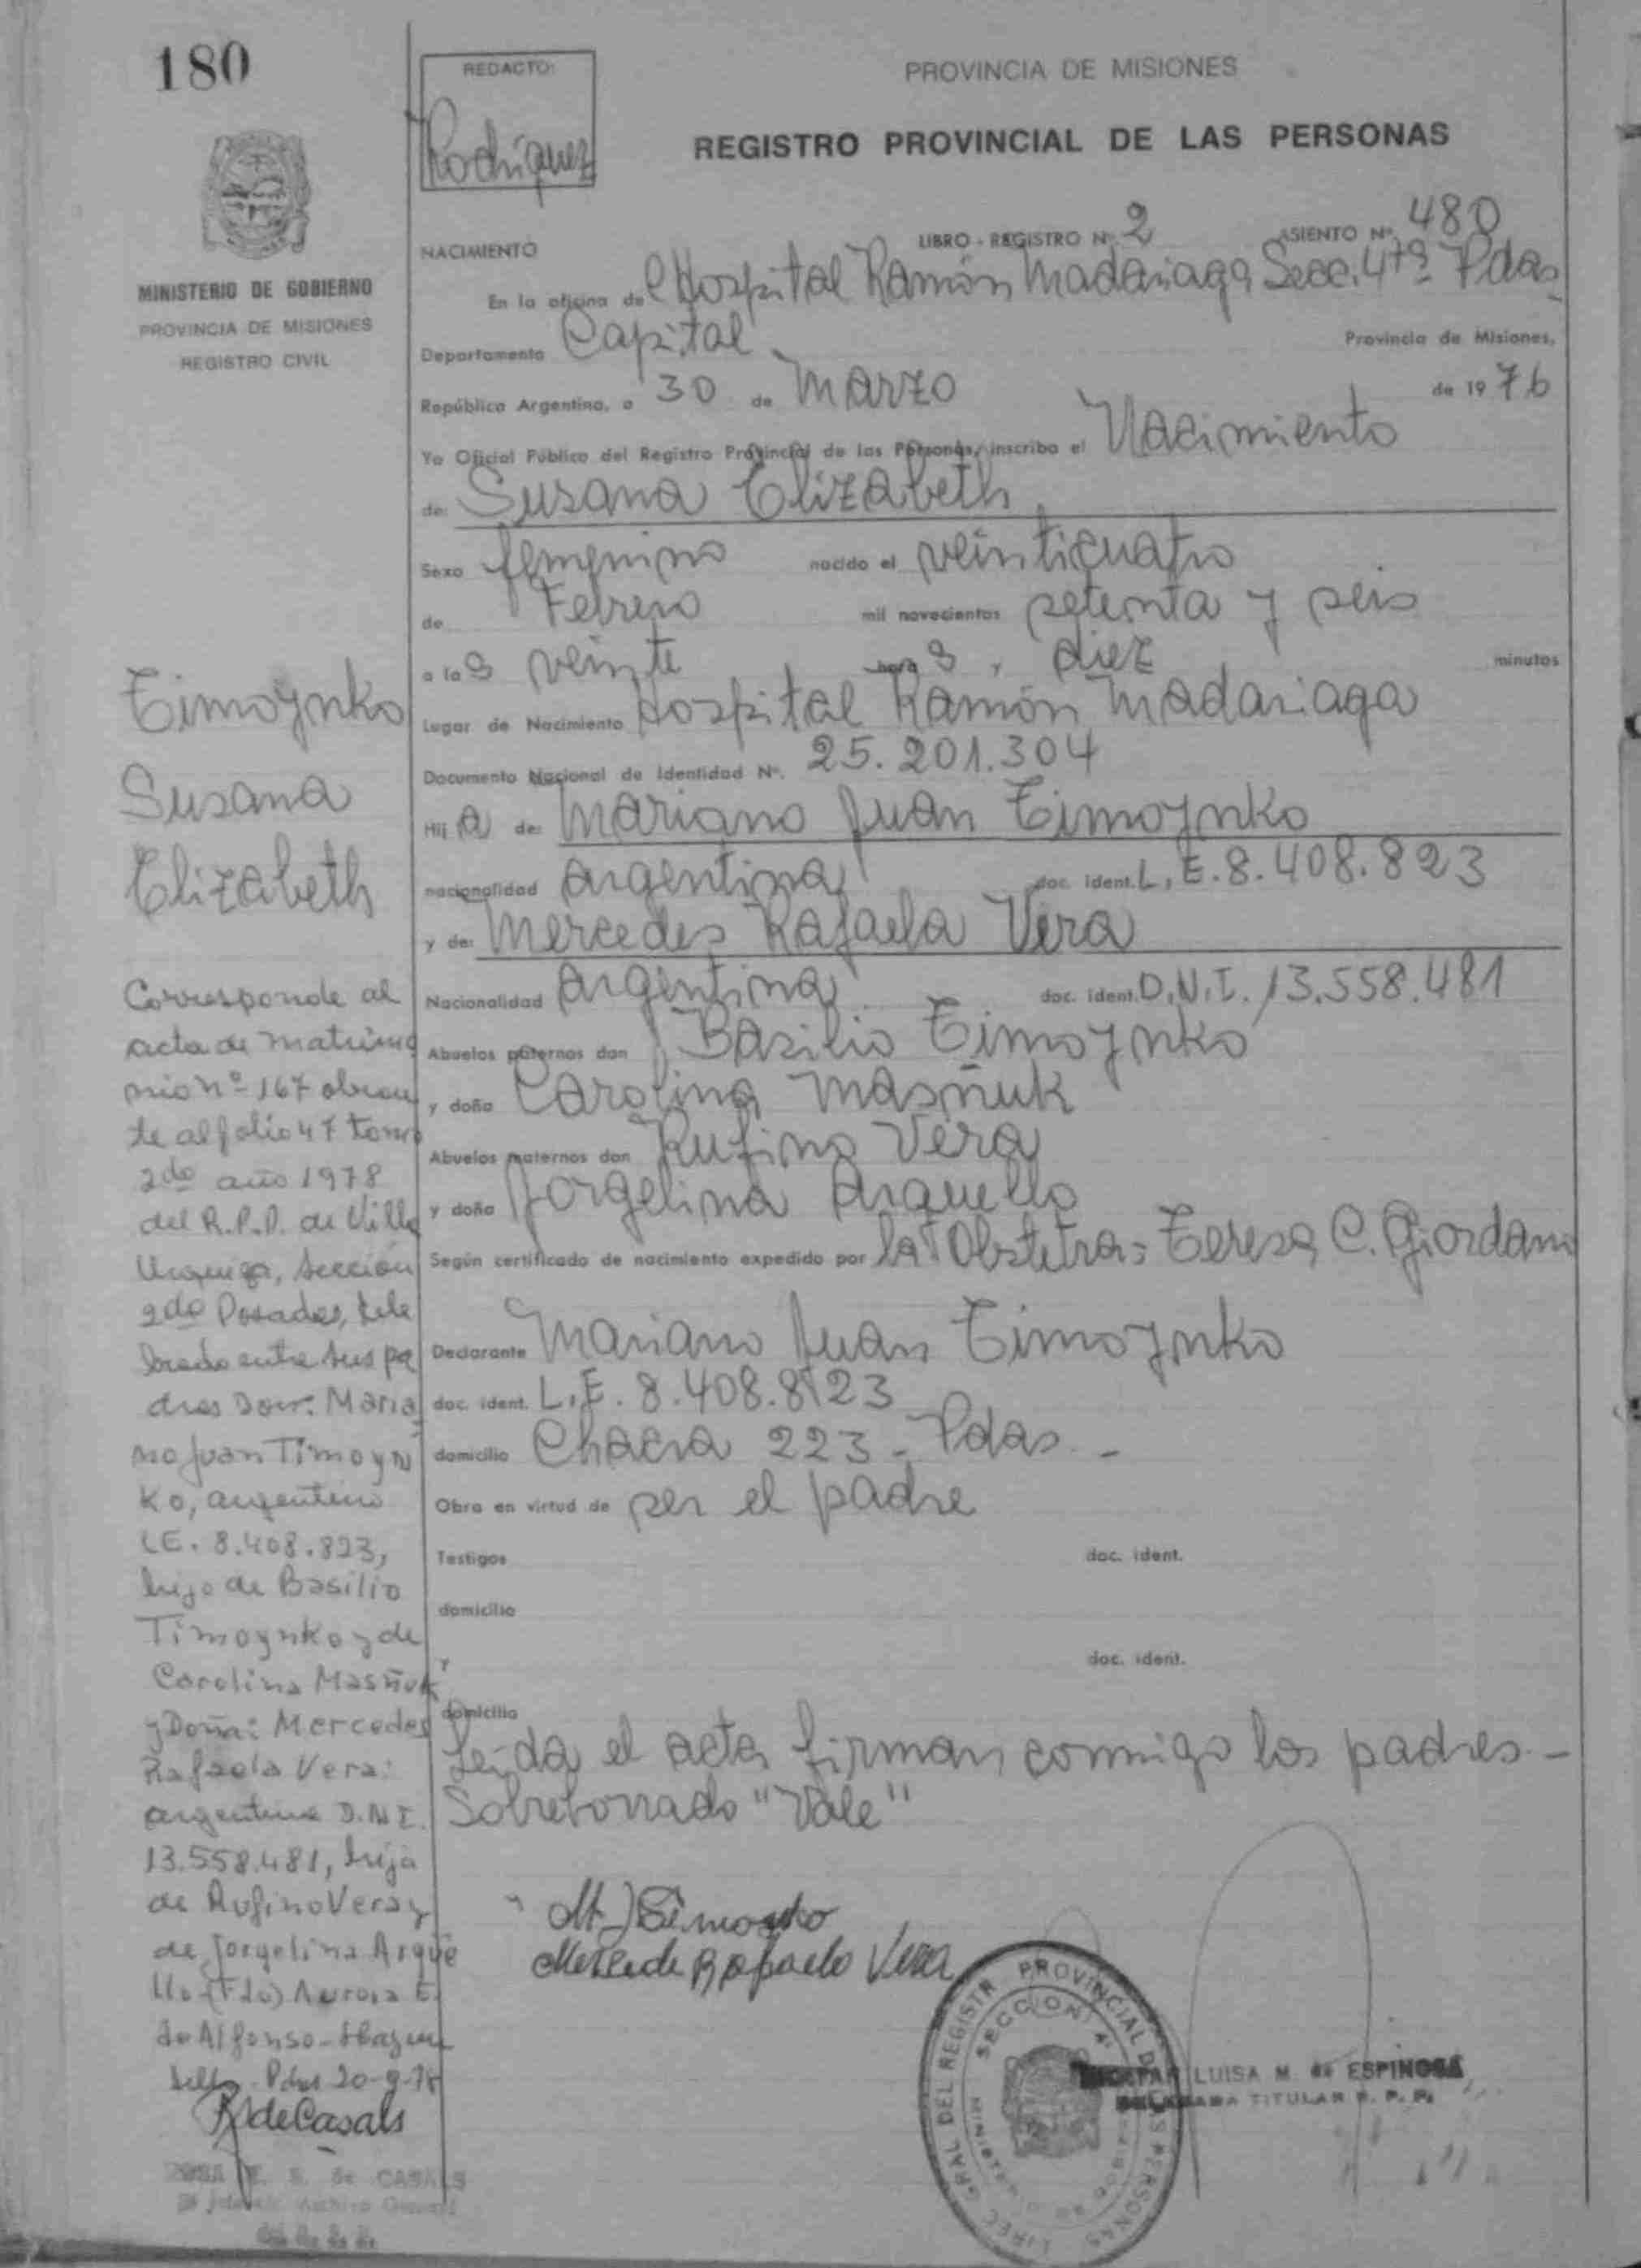 180
REDACTO:
Rodriguez
PROVINCIA DE MISIONES
REGISTRO PROVINCIAL DE LAS PERSONAS
MINISTERIO DE GOBIERNO
PROVINCIA DE MISIONES
REGISTRO CIVIL
NACIMIENTO
LIBRO - REGISTRO Nº 2 ASIENTO Nº 480
En la oficina del Hospital Ramón Madariaga Secc. 4ta Pdas
Departamento Capital Provincia de Misiones,
República Argentina, a 30 de Marzo de 1976
Yo Oficial Público del Registro Provincial de las Personas, inscribo el Nacimiento
de: Susana Elizabeth
Sexo femenino nacido el veinticuatro
de Febrero mil novecientos setenta y seis
a las veinte horas y diez minutos
Lugar de Nacimiento Hospital Ramón Madariaga
Documento Nacional de Identidad Nº. 25.201.304
Hija de: Mariano Juan Timoynko
nacionalidad argentina doc. ident. L.E. 8.408.823
y de: Mercedes Rafaela Vera
Nacionalidad argentina doc. ident. D.N.I. 13.558.481
Abuelos paternos don Basilio Timoynko
y doña Carolina Masñuk
Abuelos maternos don Rufino Vera
y doña Jorgelina Arguello
Según certificado de nacimiento expedido por la Obstetra: Teresa C. Giordano
Declarante Mariano Juan Timoynko
doc. ident. L.E. 8.408.823
domicilio Chacra 223 - Pdas -
Obra en virtud de ser el padre
Testigos doc. ident.
domicilio
y doc. ident.
domicilio
Leída el acta firman conmigo los padres -
Sobreborrado "Vale"
M J Timoynko
Mercede Rafaela Vera
Timoynko
Susana
Elizabeth
Corresponde al
acta de matrimo
nio nº 167 obran
te al folio 47 tomo
2do año 1978
del R.P.P. de Villa
Urquiza, sección
2do Posadas, cele
brado entre sus pa
dres Don: Maria
no Juan Timoyn
ko, argentino
LE. 8.408.823,
hijo de Basilio
Timoynko y de
Carolina Masñuk
y Doña: Mercedes
Rafaela Vera:
argentina D.N.I.
13.558.481, hija
de Rufino Vera y
de Jorgelina Argüe
llo (Fdo) Aurora E.
de Alfonso - Hay un
sello - Pdas 20-9-78
R de Casals
ROSA E. S. de CASALS
Archivo General
DIREC. GRAL. DEL REGISTR. PROVINCIAL DE LAS PERSONAS
SECCION 4ª
LUISA M. de ESPINOSA
DELEGADA TITULAR R. P. P.